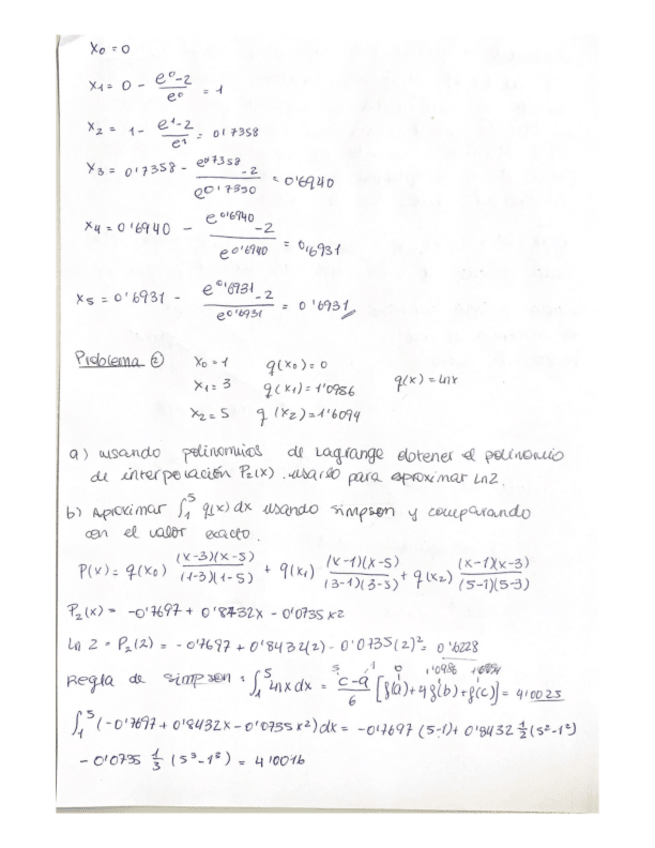 x0 = 0
x1 = 0 - (e^0 - 2)/e^0 = 1
x2 = 1 - (e^1 - 2)/e^1 = 0'7358
x3 = 0'7358 - (e^0'7358 - 2)/e^0'7350 = 0'6940
x4 = 0'6940 - (e^0'6940 - 2)/e^0'6940 = 0'6931
x5 = 0'6931 - (e^0'6931 - 2)/e^0'6931 = 0'6931
Problema ② x0 = 1 g(x0) = 0
x1 = 3 g(x1) = 1'0986 g(x) = lnx
x2 = 5 g(x2) = 1'6094
a) usando polinomios de Lagrange obtener el polinomio
de interpolación P2(x). usarlo para aproximar Ln2.
b) Aproximar ∫₁⁵ g(x) dx usando simpson y comparando
con el valor exacto.
P(x) = g(x0) (x-3)(x-5)/(1-3)(1-5) + g(x1) (x-1)(x-5)/(3-1)(3-5) + g(x2) (x-1)(x-3)/(5-1)(5-3)
P2(x) = -0'7697 + 0'8432x - 0'0735x2
Ln 2 = P2(2) = -0'7697 + 0'8432(2) - 0'0735(2)² = 0'6228
5 1 0 1'0986 1'6094
Regla de simpson: ∫₁⁵ lnx dx = (c-a)/6 [f(a) + 4f(b) + f(c)] = 4'0025
∫₁⁵ (-0'7697 + 0'8432x - 0'0735x²) dx = -0'7697 (5-1) + 0'8432 1/2 (5²-1²)
- 0'0735 1/3 (5³-1³) = 4'0016